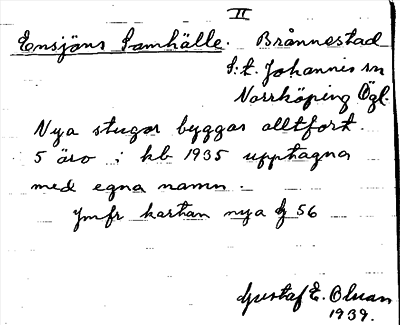 II
Ensjöns Samhälle. Brånnestad
S:t. Johannis sn
Norrköping Ögl.
Nya stugor byggas alltfort.
5 äro i kb 1935 upptagna
med egna namn.
Jmfr kartan nya 56
Gustaf E. Olsson
1939.